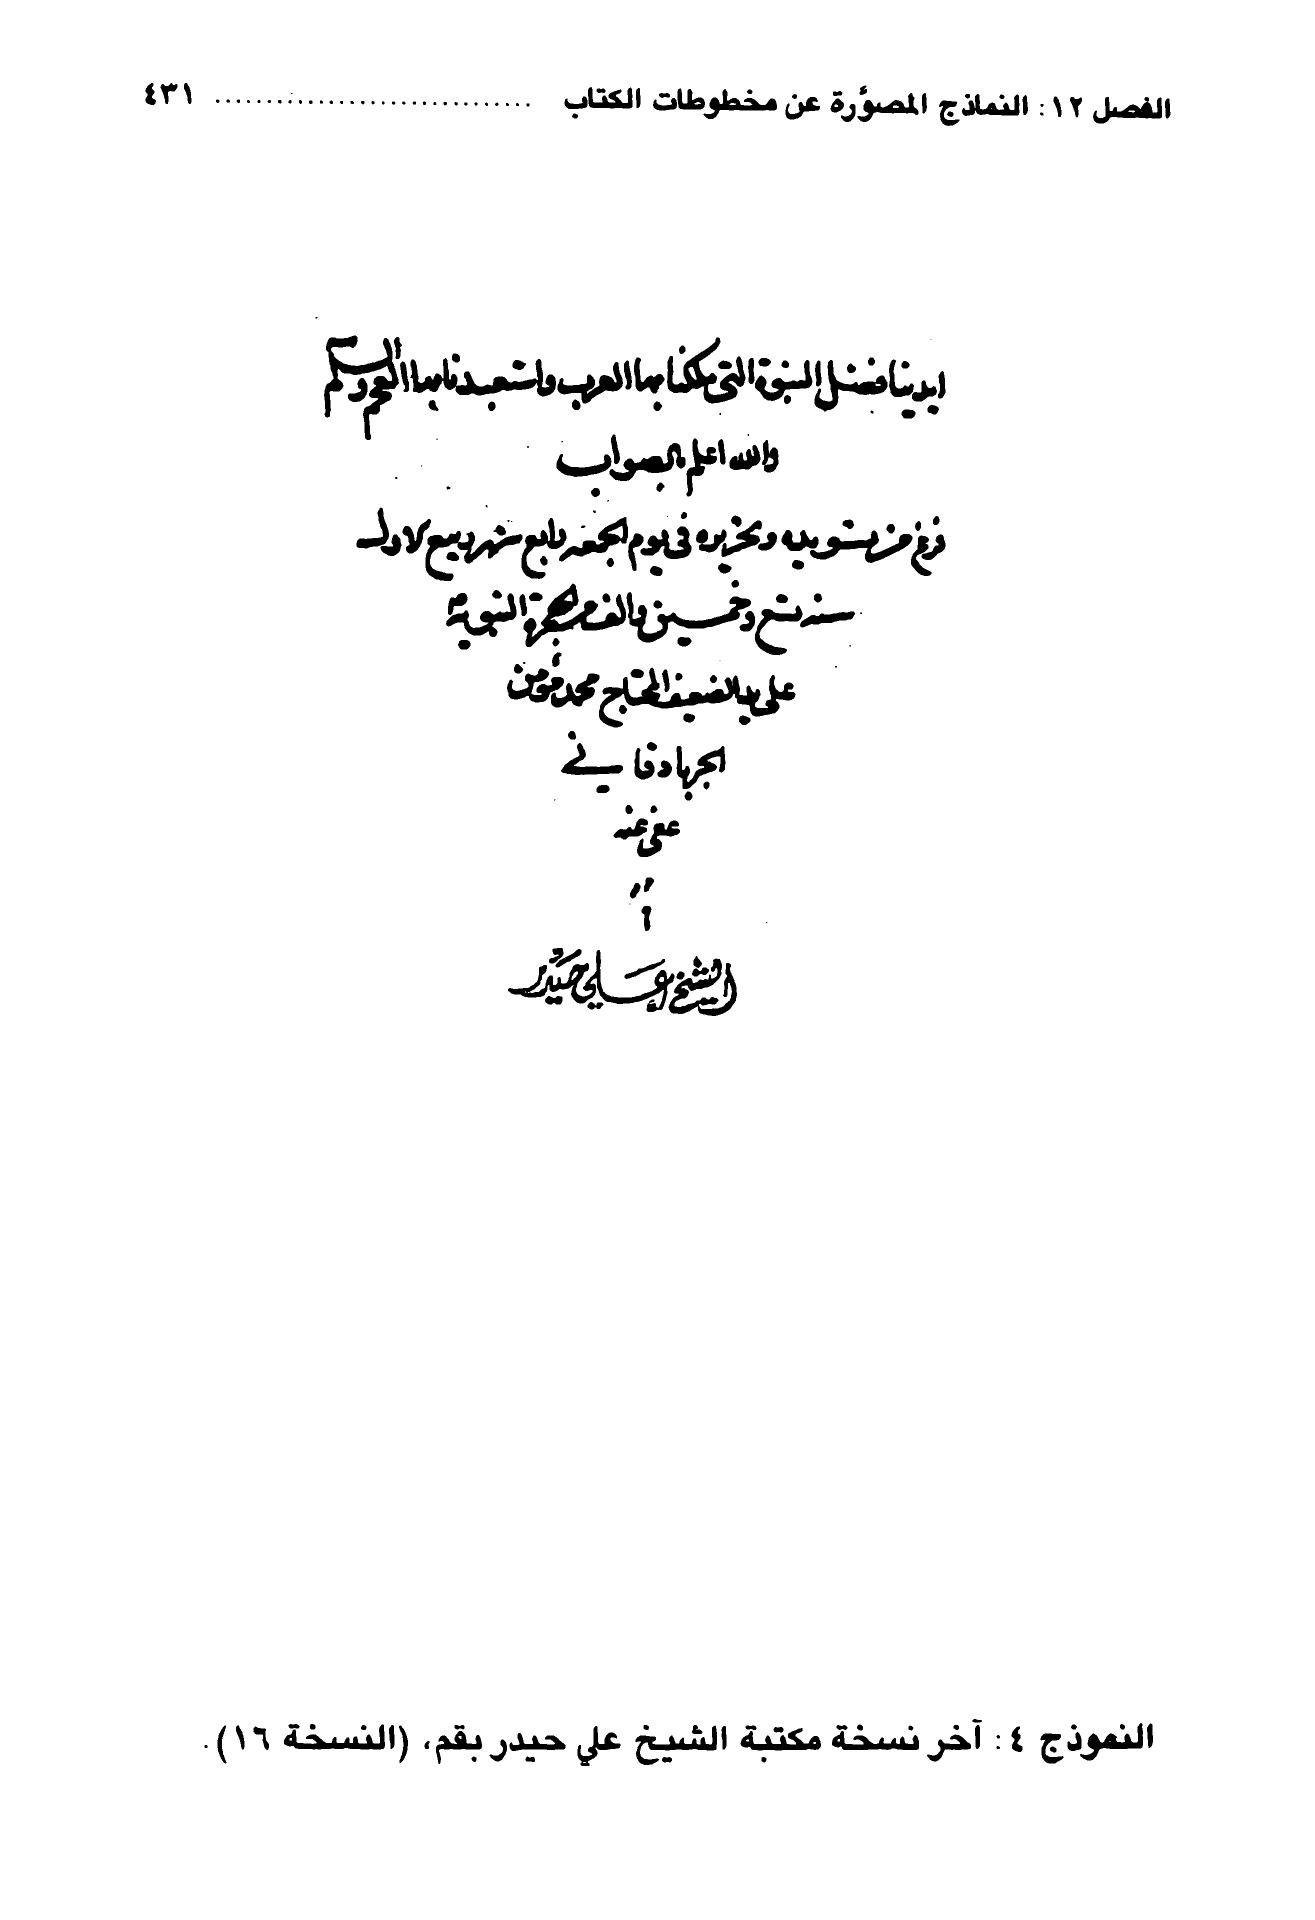 الفصل ١٢: النماذج المصوَّرة عن مخطوطات الكتاب ٤٣١
ايدينا فضل النبوة التي ملكنا بها العرب واستعبدنا بها العجم والسلم
والله اعلم بالصواب
فرغ من تسويده وتحريره في يوم الجمعه رابع شهر ربيع الاول
سنه تسع وخمسين والف من الهجرة النبوية
على يد الضعيف المحتاج محمد مؤمن
الجرفادقاني
عفى عنه
الشيخ علي حيدر
النموذج ٤: آخر نسخة مكتبة الشيخ علي حيدر بقم، (النسخة ١٦).